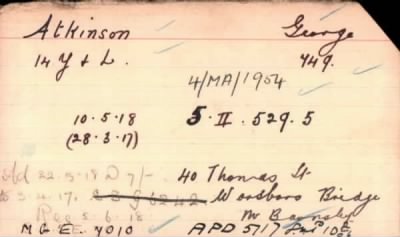 Atkinson George
14 Y & L. 749.
4/MA/1954
10.5.18 5.II.529.5
(28.3.17)
22.5.18 D 7/- 40 Thomas St
3.4.17. Worsboro Bridge
5.6.18. Nr Barnsley
MG EE 7010 APD 5717